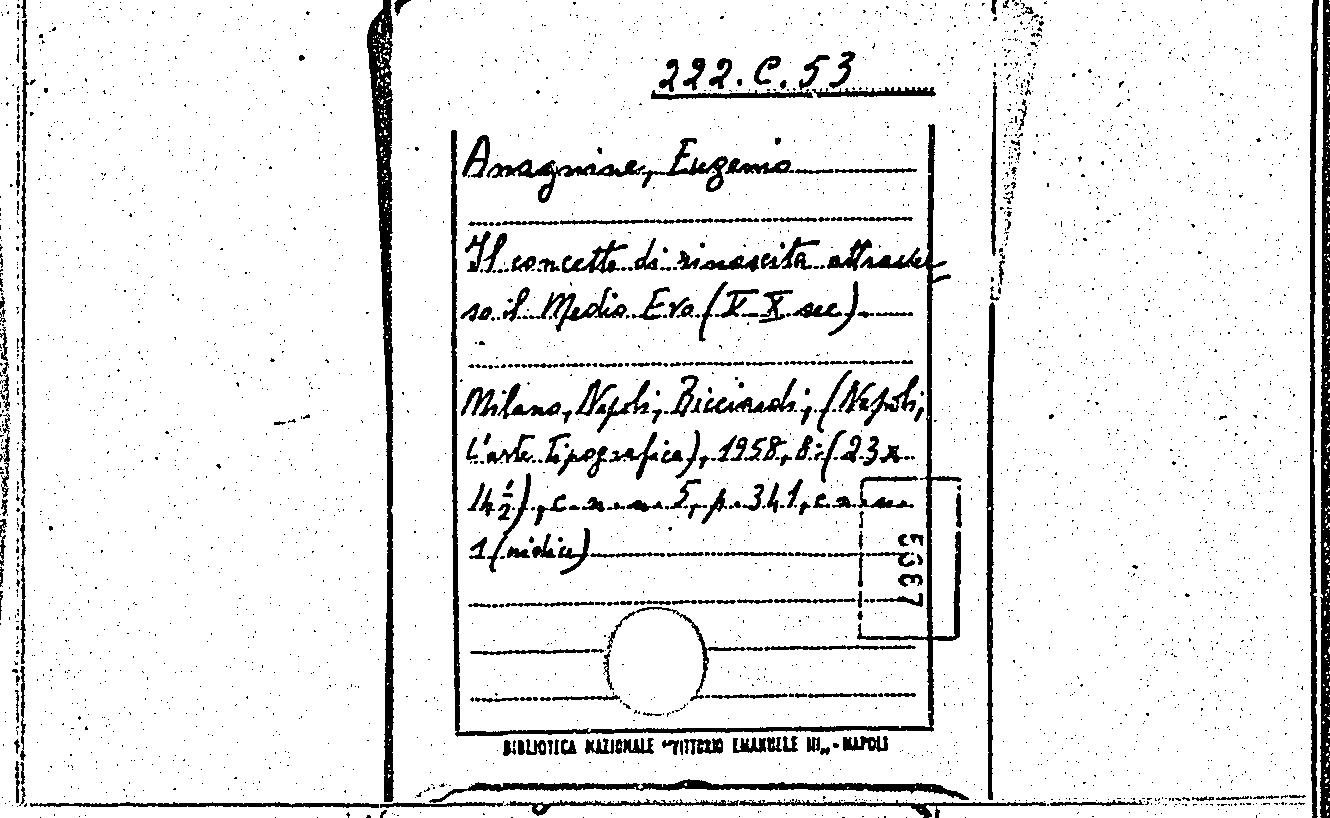 222.C.53
Anagnine, Eugenio
Il concetto di rinascita attraver-
so il Medio Evo (V-X sec).
Milano, Napoli, Ricciardi, (Napoli,
L'arte tipografica), 1958, 8: (23x
14 1/2), c. n. n. 5, p. 341, c. n. n.
1 (indice)
5367
BIBLIOTECA NAZIONALE "VITTORIO EMANUELE III„ - NAPOLI